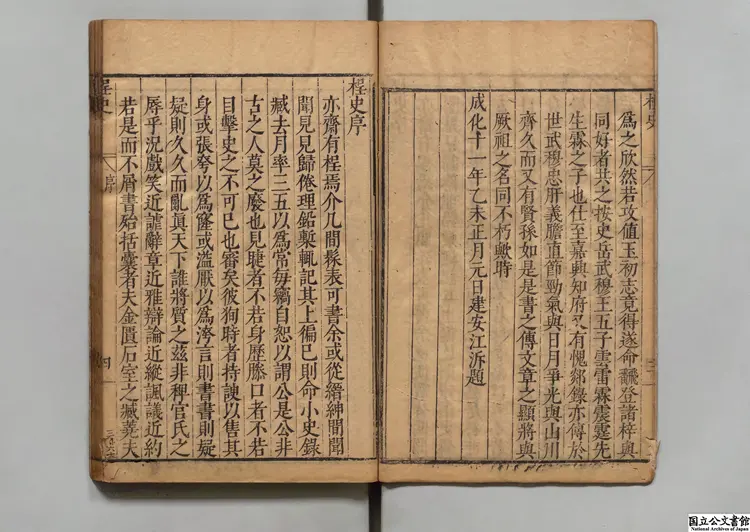 爲之欣然若攻値玉初志竟得遂命繡登諸梓與
同好者共之按史岳武穆王五子雲雷霖震霆先
生霖之子也仕至嘉興知府又有愧郯錄亦傳於
世武穆忠肝義膽直節勁氣與日月爭光與山川
齊久而又有賢孫如是是書之傳文章之顯將與
厥祖之名同不朽歟時
成化十一年乙未正月元日建安江泝題
桯史序
亦齋有桯焉介几間髹表可書余或從搢紳間聞
聞見見歸倦理鉛槧輒記其上徧已則命小史錄
臧去月率三五以爲常每竊自恕以謂公是公非
古之人莫之廢也見睫者不若身歷滕口者不若
目擊史之不可已也審矣彼狥時者持諛以售其
身或張夸以爲窿或溢厭以爲洿言則書書則疑
疑則久久而亂眞天下誰將質之茲非稗官氏之
辱乎況戲笑近謔辭章近雅辯論近縱諷議近約
若是而不屑書殆括囊者夫金匱石室之臧蕘夫
桯史
序
四
国立公文書館
National Archives of Japan